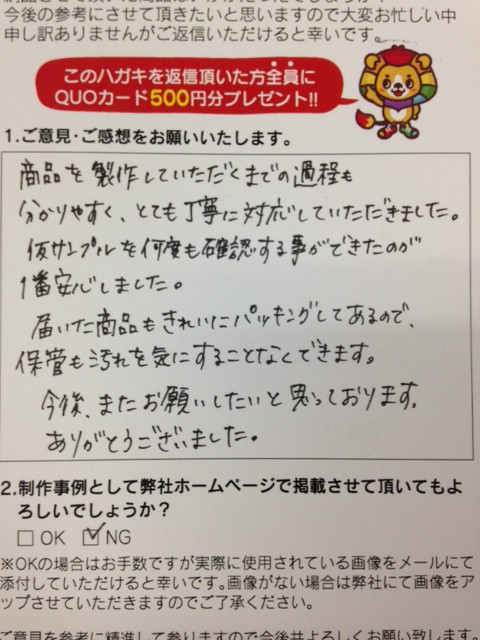 今後の参考にさせて頂きたいと思いますので大変お忙しい中
申し訳ありませんがご返信いただけると幸いです。
このハガキを返信頂いた方全員に
QUOカード500円分プレゼント!!
1.ご意見・ご感想をお願いいたします。
商品を製作していただくまでの過程も
分かりやすく、とても丁寧に対応していただきました。
仮サンプルを何度も確認する事ができたのが
1番安心しました。
届いた商品もきれいにパッキングしてあるので、
保管も汚れを気にすることなくできます。
今後、またお願いしたいと思っております。
ありがとうございました。
2.制作事例として弊社ホームページで掲載させて頂いてもよ
ろしいでしょうか?
□ OK ☑ NG
※OKの場合はお手数ですが実際に使用されている画像をメールにて
添付していただけると幸いです。画像がない場合は弊社にて画像をア
ップさせていただきますのでご了承ください。
ご意見を参考に精進して参りますので今後共よろしくお願い致します。